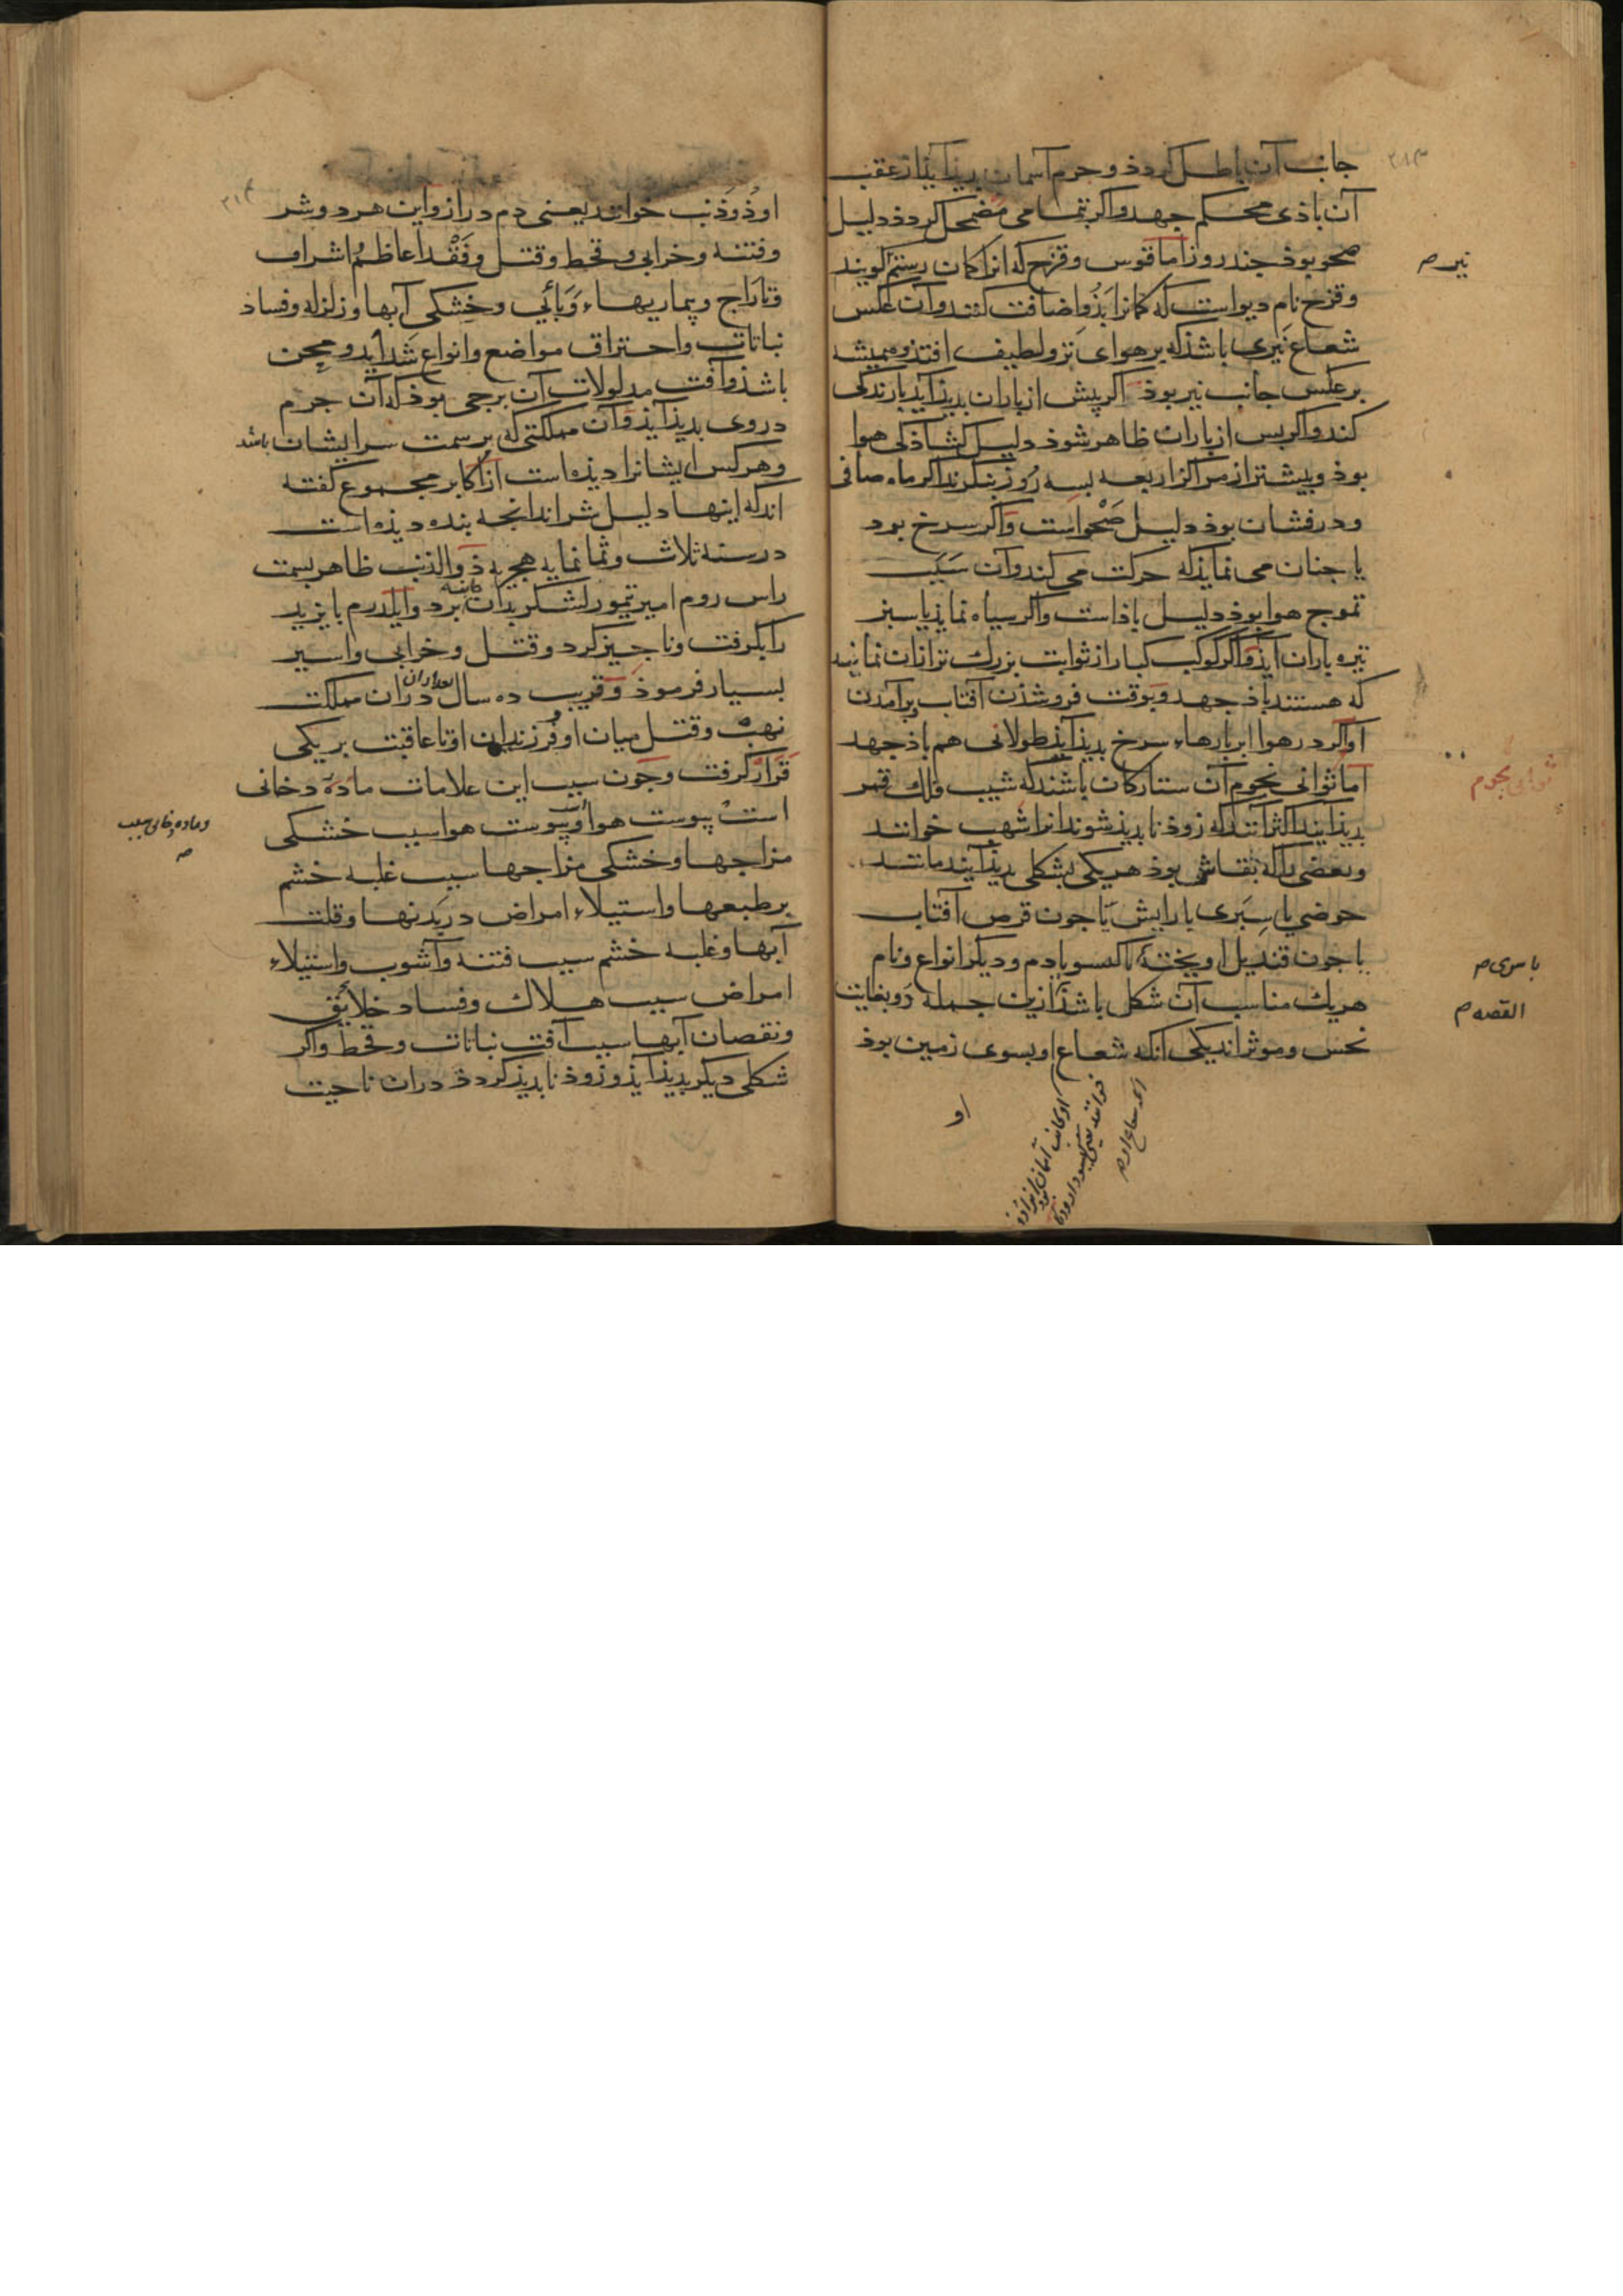 جانب آن باطل کردذ و جرم آسمان بدیذ آیذ از عقب
آن باذی محکم جهد و اکر بتمامی مضمحل کردذ دلیل
صحو بوذ جند روز اما قوس و قزح که انرا کمان رستم کویند
و قزح نام دیو است که کمانرا بذو اضافت کنند و آن عکس
شعاع نیری باشذ که بر هوای تر و لطیف افتذ و همیشه
بر عکس جانب نیر بوذ اکر پیش از باران بدیذ آید بارندکی
کند و اکر بس از باران ظاهر شوذ دلیل کشاذکی هوا
بوذ و بیشتر از مراکز اربعه بسه روز بنکرند اکر ماه صافی
و درفشان بوذ دلیل صحو است و اکر سرخ بود
یا جنان می نمایذ که حرکت می کند و آن سبب
تموج هوا بوذ دلیل باذ است و اکر سیاه نمایذ یا سبز
تیره باران ایذ و اکر کوکب کبار از ثوابت بزرك تر از ان نمایند
که هستند باذ جهد و بوقت فرو شذن آفتاب و برآمدن
او اکر در هوا ابر بارهاء سرخ بدیذ آیذ طولانی هم باذ جهد
اما ثوانی نجوم آن ستارکان باشند که شیب فلك قمر
بدیذ آیند اکثر آنند که زوذ نابدیذ شوند انرا شهب خوانند
و بعضی را که بقاش بوذ هر یکی بشکلی بدیذ آیند مانند
حوضی یا سپری با رایش یا جون قرص آفتاب
یا جون قندیل اویخته یا کیسو یا دم و دیکر انواع و نام
هریك مناسب آن شکل باشذ از ین جمله دو بغایت
نحس و موثراند یکی آنکه شعاع او بسوی زمین بوذ
او
نیر م
ثوانی نجوم
یا سری م
القصه م
او ذو ذنب خوانند یعنی دم دراز و این هر دو شر
و فتنه و خرابی و قحط و قتل و فقد اعاظم اشراف
و تاراج و بیماریهاء وبائی و خشکی آبها و زلزله و فساد
نباتات و احتراق مواضع و انواع شداید و محن
باشذ و آفت مدلولات آن برجی بوذ که آن جرم
در وی بدیذ آیذ و آن مملکتی که بر سمت سر ایشان باشد
و هر کس ایشانرا دیذه است از اکابر مجموع کفته
اند که اینها دلیل شراند انجه بنده دیذه است
در سنه ثلاث و ثمانمایه هجریه ذو الذنب ظاهر بسمت
راس روم امیر تیمور لشکر بدان جانب برد و ایلدرم بایزید
را بکرفت و ناجیز کرد و قتل و خرابی و اسیر
بسیار فرموذ و قریب ده سال بعد از ان دران مملکت
نهب و قتل میان او فرزندان او تا عاقبت بر یکی
قرار کرفت و جون سبب این علامات ماده دخانی
است یبوست هوا و یبوست هوا سبب خشکی
مزاجها و خشکی مزاجها سبب غلبه خشم
بر طبعها و استیلاء امراض در بدنها و قلت
آبها و غلبه خشم سبب فتنه و آشوب و استیلاء
امراض سبب هلاك و فساد خلائق
و نقصان آبها سبب آفت نباتات و قحط و اکر
شکلی دیکر بدیذ آیذ و زوذ نابدیذ کردذ دران ناحیت
و ماده دخانی سبب
م